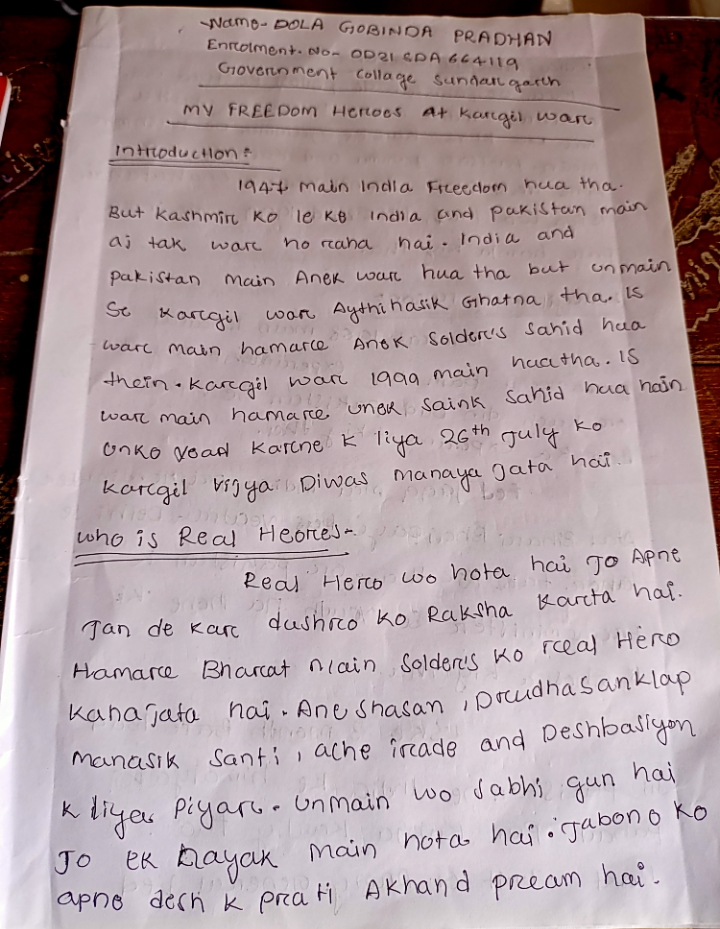 Name- DOLA GOBINDA PRADHAN
Enrolment. No- OD21SDA664119
Government Collage Sundargarh
MY FREEDOM Heroes At Kargil War
Introduction:
1947 main India Freedom hua tha.
But Kashmir ko le ke India and Pakistan main
aj tak war ho raha hai. India and
Pakistan main Anek war hua tha but unmain
Se Kargil war Aythihasik Ghatna tha. Is
war main hamare Anek Solder's Sahid hua
thein. Kargil war 1999 main hua tha. IS
war main hamare unek Saink Sahid hua hain
Onko yead Karne K liya 26th July ko
Kargil Vijya Diwas manaya Jata hai.
Who is Real Heores-
Real Hero wo hota hai Jo Apne
Jan de Kar dushro ko Raksha Karta hai.
Hamare Bharat main Solder's ko real Hero
Kaha Jata hai. Aneshasan, Drudhasanklap
manasik Santi, ache irade and Deshbasiyon
K liyea Piyar. Unmain wo Sabhi gun hai
Jo ek nayak main hota hai. Jabono ko
apno desh k prati Akhand pream hai.